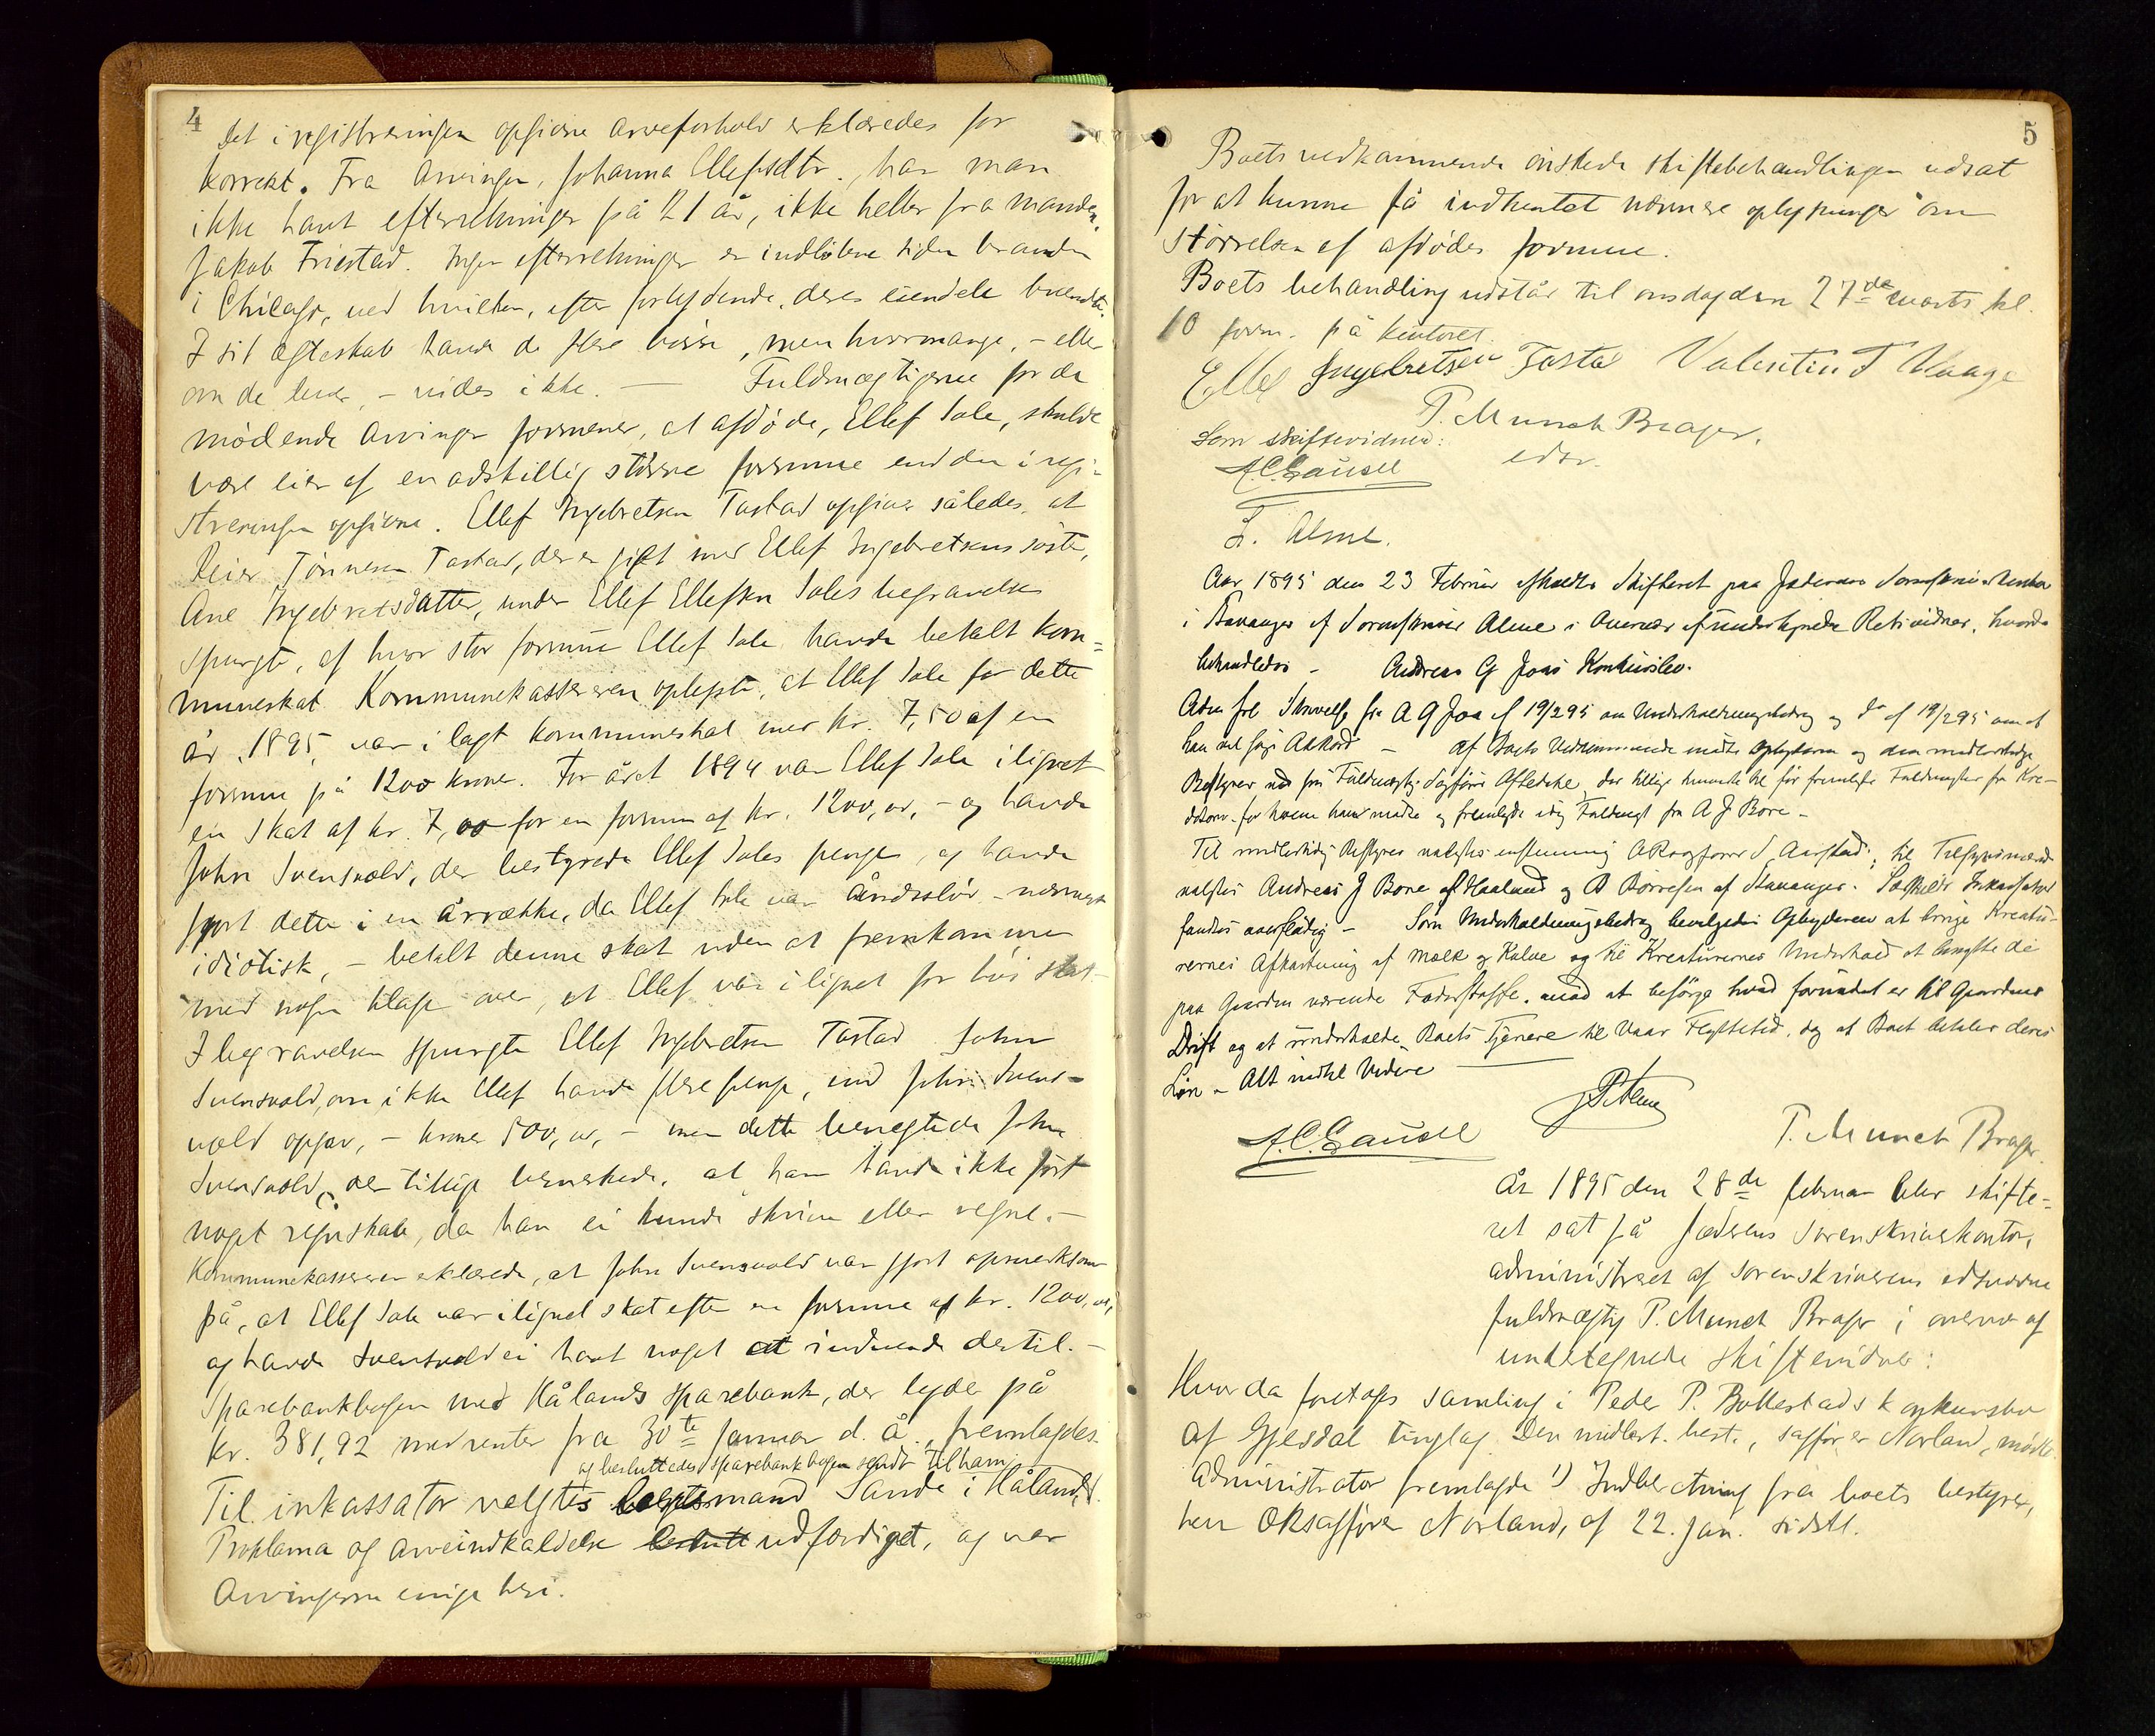 4
Det i registreringen opgivne arveforhold erklæredes for
korrekt. Fra arvingen, Johanna Ellefsdtr., har man
ikke havt efterretninger på 21 år, ikke heller fra manden,
Jakob Friestad. Ingen efterretninger er indløbne siden branden
i Chicago, ved hvilken, efter forlydende, deres eiendele brændte.
I sit ægteskab havde de flere börn, men hvormange, – eller
om de lever, – vides ikke. — Fuldmægtigerne for de
mödende arvinger formener, at afdøde, Ellef Sole, skulde
være eier af en adskillig större formue end den i regi-
streringen opgivne. Ellef Ingebretsen Tastad opgiver således, at
Reier Tönnesen Tastad, der er gift med Ellef Ingebretsens söster,
Ane Ingebretsdatter, under Ellef Ellefsen Soles begravelse
spurgte, af hvor stor formue Ellef Sole havde betalt kom=
muneskat. Kommunekassereren oplyste, at Ellef Sole for dette
år, 1895, var i lagt kommuneskat med kr. 7,50 af en
formue på 1200 kroner. For året 1894 var Ellef Sole ilignet
en skat af kr. 7,00 for en formue af kr. 1200,00, – og havde
John Svensvold, der bestyrede Ellef Soles penger, og havde
gjort dette i en årrække, da Ellef Sole var åndssløv – nærmest
idiotisk, – betalt denne skat uden at fremkomme
med nogen klage over, at Ellef var ilignet for höi skat.
I begravelsen spurgte Ellef Ingebretsen Tastad John
Svensvold, om ikke Ellef havde flere penge, end John Svens-
vold opgav, – kroner 500,00, – men dette benegtede John
Svensvold, der tillige bemerkede, at han havde ikke fört
noget regnskab, da han ei kunde skrive eller regne. –
Kommunekassereren erklærede, at John Svensvold var gjort opmerksom
på, at Ellef Sole var ilignet skat efter en formue af kr. 1200,00,
og havde Svensvold ei havt noget at indvende dertil. –
Sparebankbogen med Hålands sparebank, der lyder på
kr. 381,92 med renter fra 30te januar d. å., fremlagdes.
og besluttedes sparebankbogen sendt til ham
Til inkassator valgtes lensmand Sande i Håland,
Proklama og arveindkaldelse beslutt udfærdiget, og var
arvingerne enige heri.
5
Boets vedkommende önskede skiftebehandlingen udsat
for at kunne få indhentet nærmere oplysninger om
størrelsen af afdødes formue.
Boets behandling udstår til onsdag den 27de marts kl.
10 form. på kontoret.
Ellef Ingebretsen Tasta Valentin T Haage
P. Munch Brager.
Som skiftevidner: edsv.
A.C. Gausel
L. Alme.
Aar 1895 den 23 Februar afholdtes Skifteret paa Jæderens Sorenskriverkontor
i Stavanger af Sorenskriver Alme i Overvær af undertegnede Retsvidner, hvorda
behandledes – Andreas G Joas Konkursbo.
Adm frl Skrivelse fra A G Joa af 19/2 95 om Underholdningsbidrag og do af 19/2 95 om at
han vil søge Akkord – Af Boets Vedkommende mødte Opbyderen og den midlertidige
Bestyrer ved sin Fuldmægtig Sagfører Aftedale, der tillige fremlagde Fuldmagter fra Kre-
ditorer for hvem han mødte og fremlagde idag Fuldmagt fra A J Bore –
Til midlertidig Bestyrer valgtes enstemmig OR sagfører S Aarstad; til Tilsynsmænd
valgtes Andreas J Bore af Haaland og B Børresen af Stavanger. Særskildt Inkassator
fandtes overflødig – Som Underholdningsbidrag bevilgedes Opbyderen at bruge Kreatu-
rernes Afkastning af Mælk og Kalve og til Kreaturernes Underhold at benytte de
paa Gaarden værende Foderstoffe, mod at besørge hvad fornødent er til Gaardens
Drift og at underholde Boets Tjenere til Vaar Flyttetid, og at Boet betaler deres
Løn – Alt indtil Videre —
Alme
A.C. Gausel P. Munch Brager
År 1895 den 28de februar blev skifte-
ret sat på Jæderens Sorenskriverkontor,
administreret af sorenskriverens edsvorne
fuldmægtig P. Munch Brager i overvær af
undertegnede skiftevidner:
Hvorda foretoges samling i Peder P. Bollestads konkursbo
af Gjesdal tinglag. Den midlert. best., sagfører Norland, mödte.
Administrator fremlagde 1) Indberetning fra boets bestyrer,
herr Oksagfører Norland, af 22. jan. sidstl.